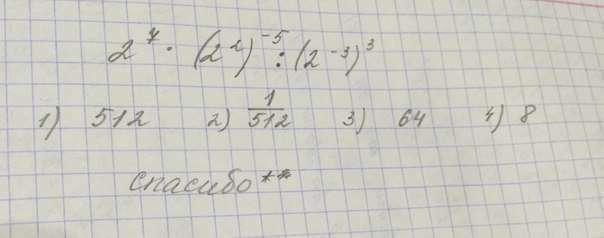 2⁷ · (2²)⁻⁵ : (2⁻³)³
1) 512 2) 1/512 3) 64 4) 8
спасибо**